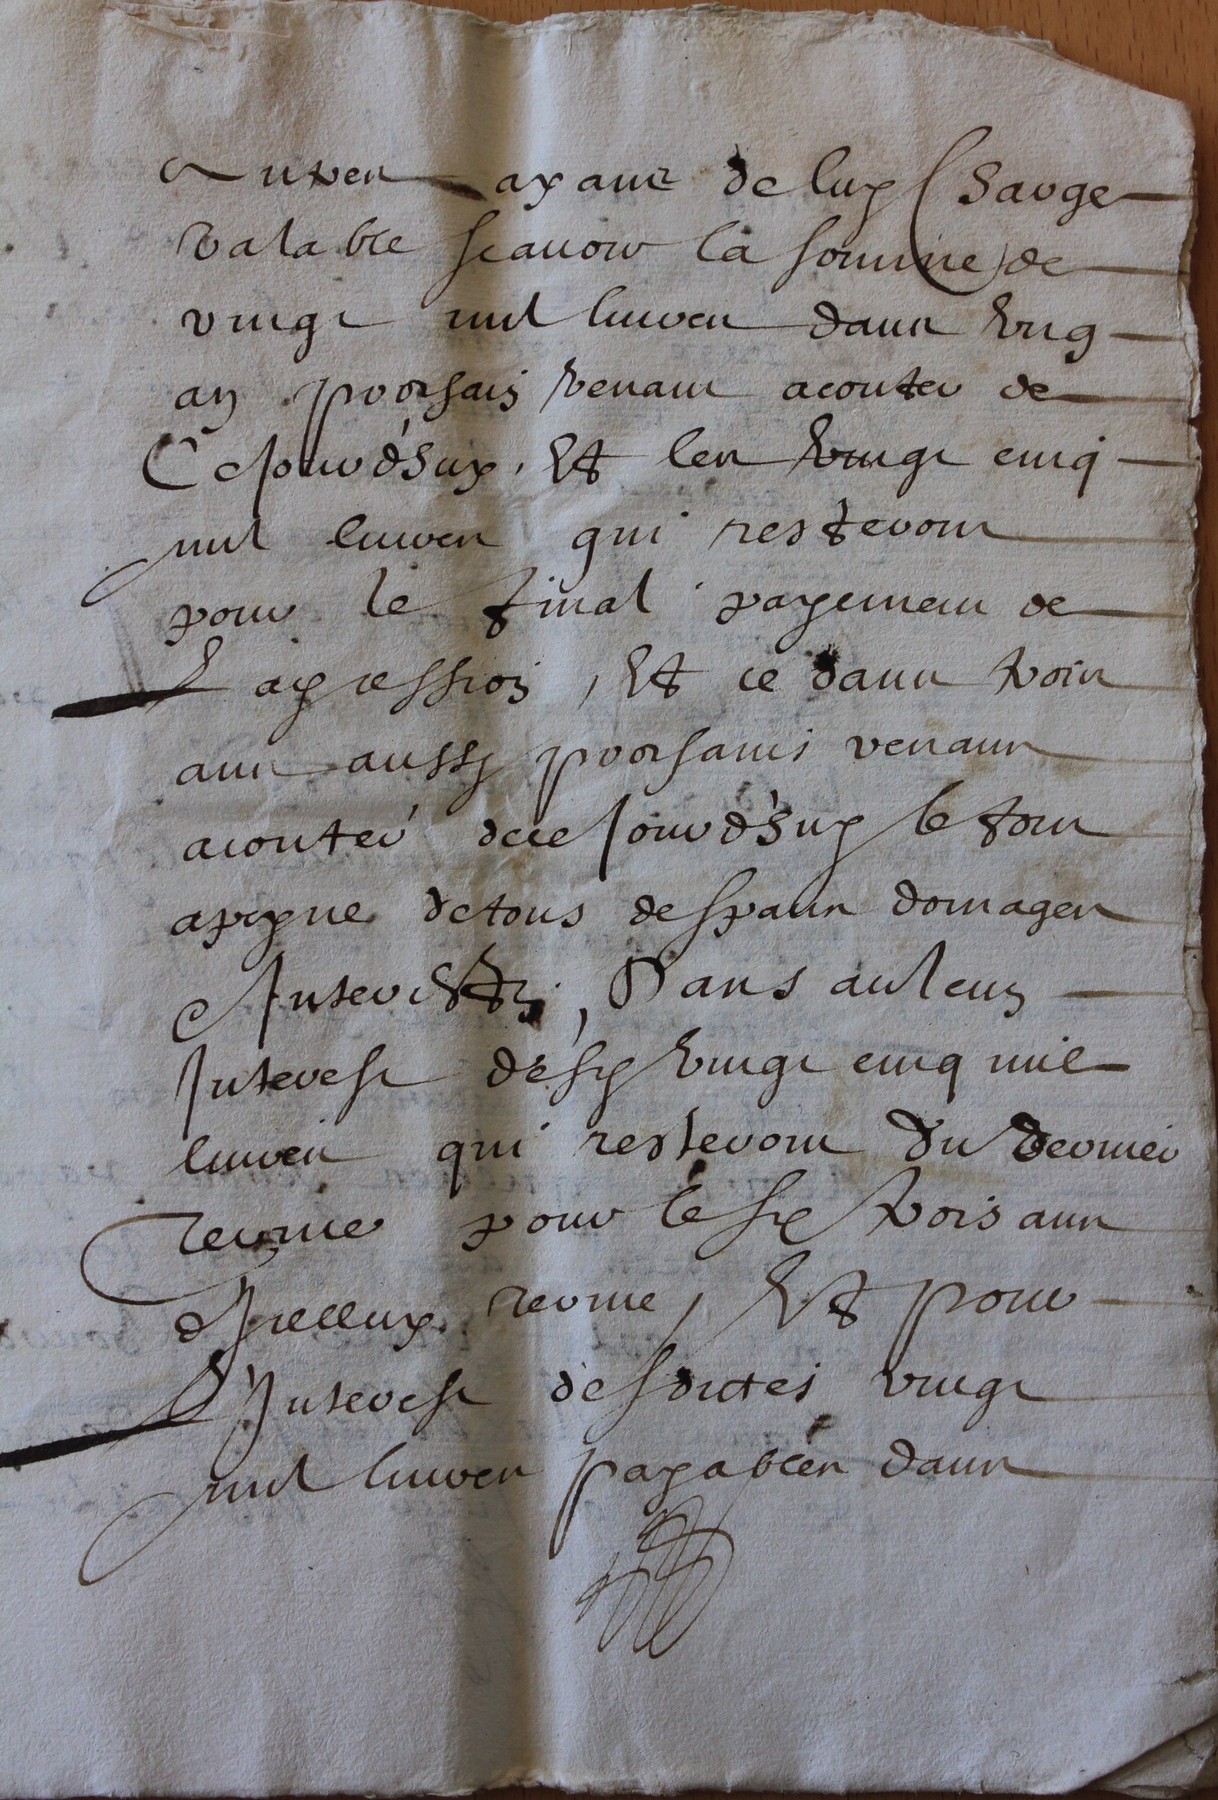 Autres ayant de luy charge
valable scavoir la somme de
vingt mil livres dans ung
an prochain venant aconter de
Cejourd'huy, Et les vingt cinq
mil livres qui resteront
pour le final payement de
La cession, Et ce dans trois
ans aussy prochains venans
aconter de ce jourd'huy le tout
apeyne de tous despans domages
Interestz, Sans aulcun
Interest desd vingt cinq mil
livres qui resteront du dernier
terme pour lesd trois ans
d'Icelluy terme, Et pour
L'Interest desdittes vingt
mil livres payables dans